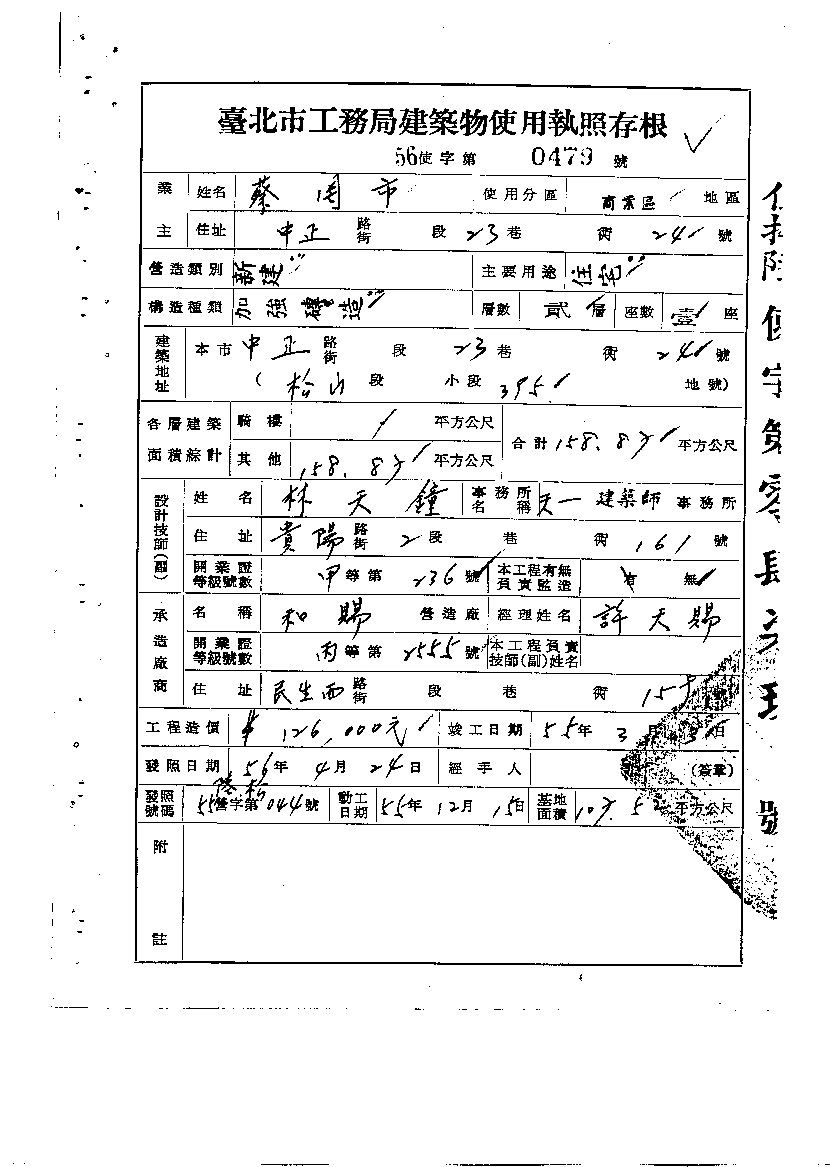 臺北市工務局建築物使用執照存根
56使字第 0479 號
業主 姓名 蔡 市 使用分區 商業區 地區
住址 中正 路街 段 23 巷 衖 24 號
營造類別 新建 主要用途 住宅
構造種類 加強磚造 層數 貳 層 座數 壹 座
建築地址 本市 中正 路街 段 23 巷 衖 24 號
( 松山 段 小段 395 地號)
各層建築面積綜計 騎樓 平方公尺 合計 158.8 平方公尺
其他 158.8 平方公尺
設計技師(副) 姓名 林天鐘 事務所名稱 天一建築師 事務所
住址 貴陽 路街 2 段 巷 衖 161 號
開業證等級號數 甲 等第 236 號 本工程有無負責監造 有 無
承造廠商 名稱 和賜 營造廠 經理姓名 許天賜
開業證等級號數 丙 等第 2555 號 本工程負責技師(副)姓名
住址 民生西 路街 段 巷 衖 15 號
工程造價 126,000元 竣工日期 55年 3月 日
發照日期 56年 4月 24日 經手人 (簽章)
發照號碼 55營字第044號 動工日期 55年 12月 15日 基地面積 平方公尺
附註
使字第零 號